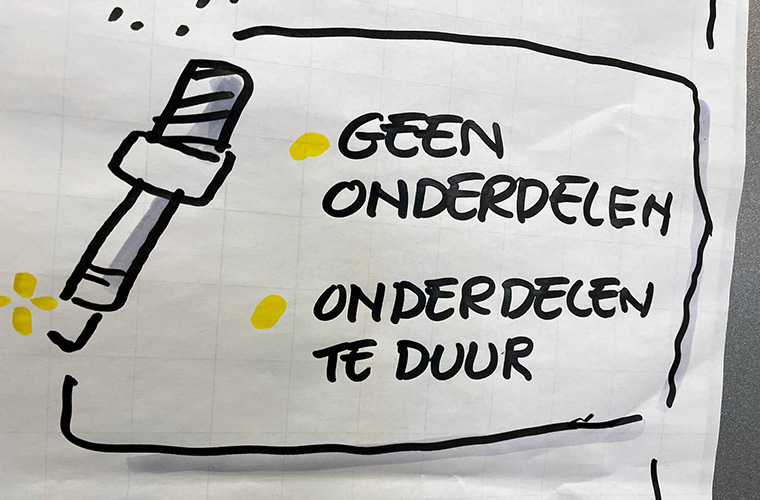 GEEN
ONDERDELEN
ONDERDELEN
TE DUUR